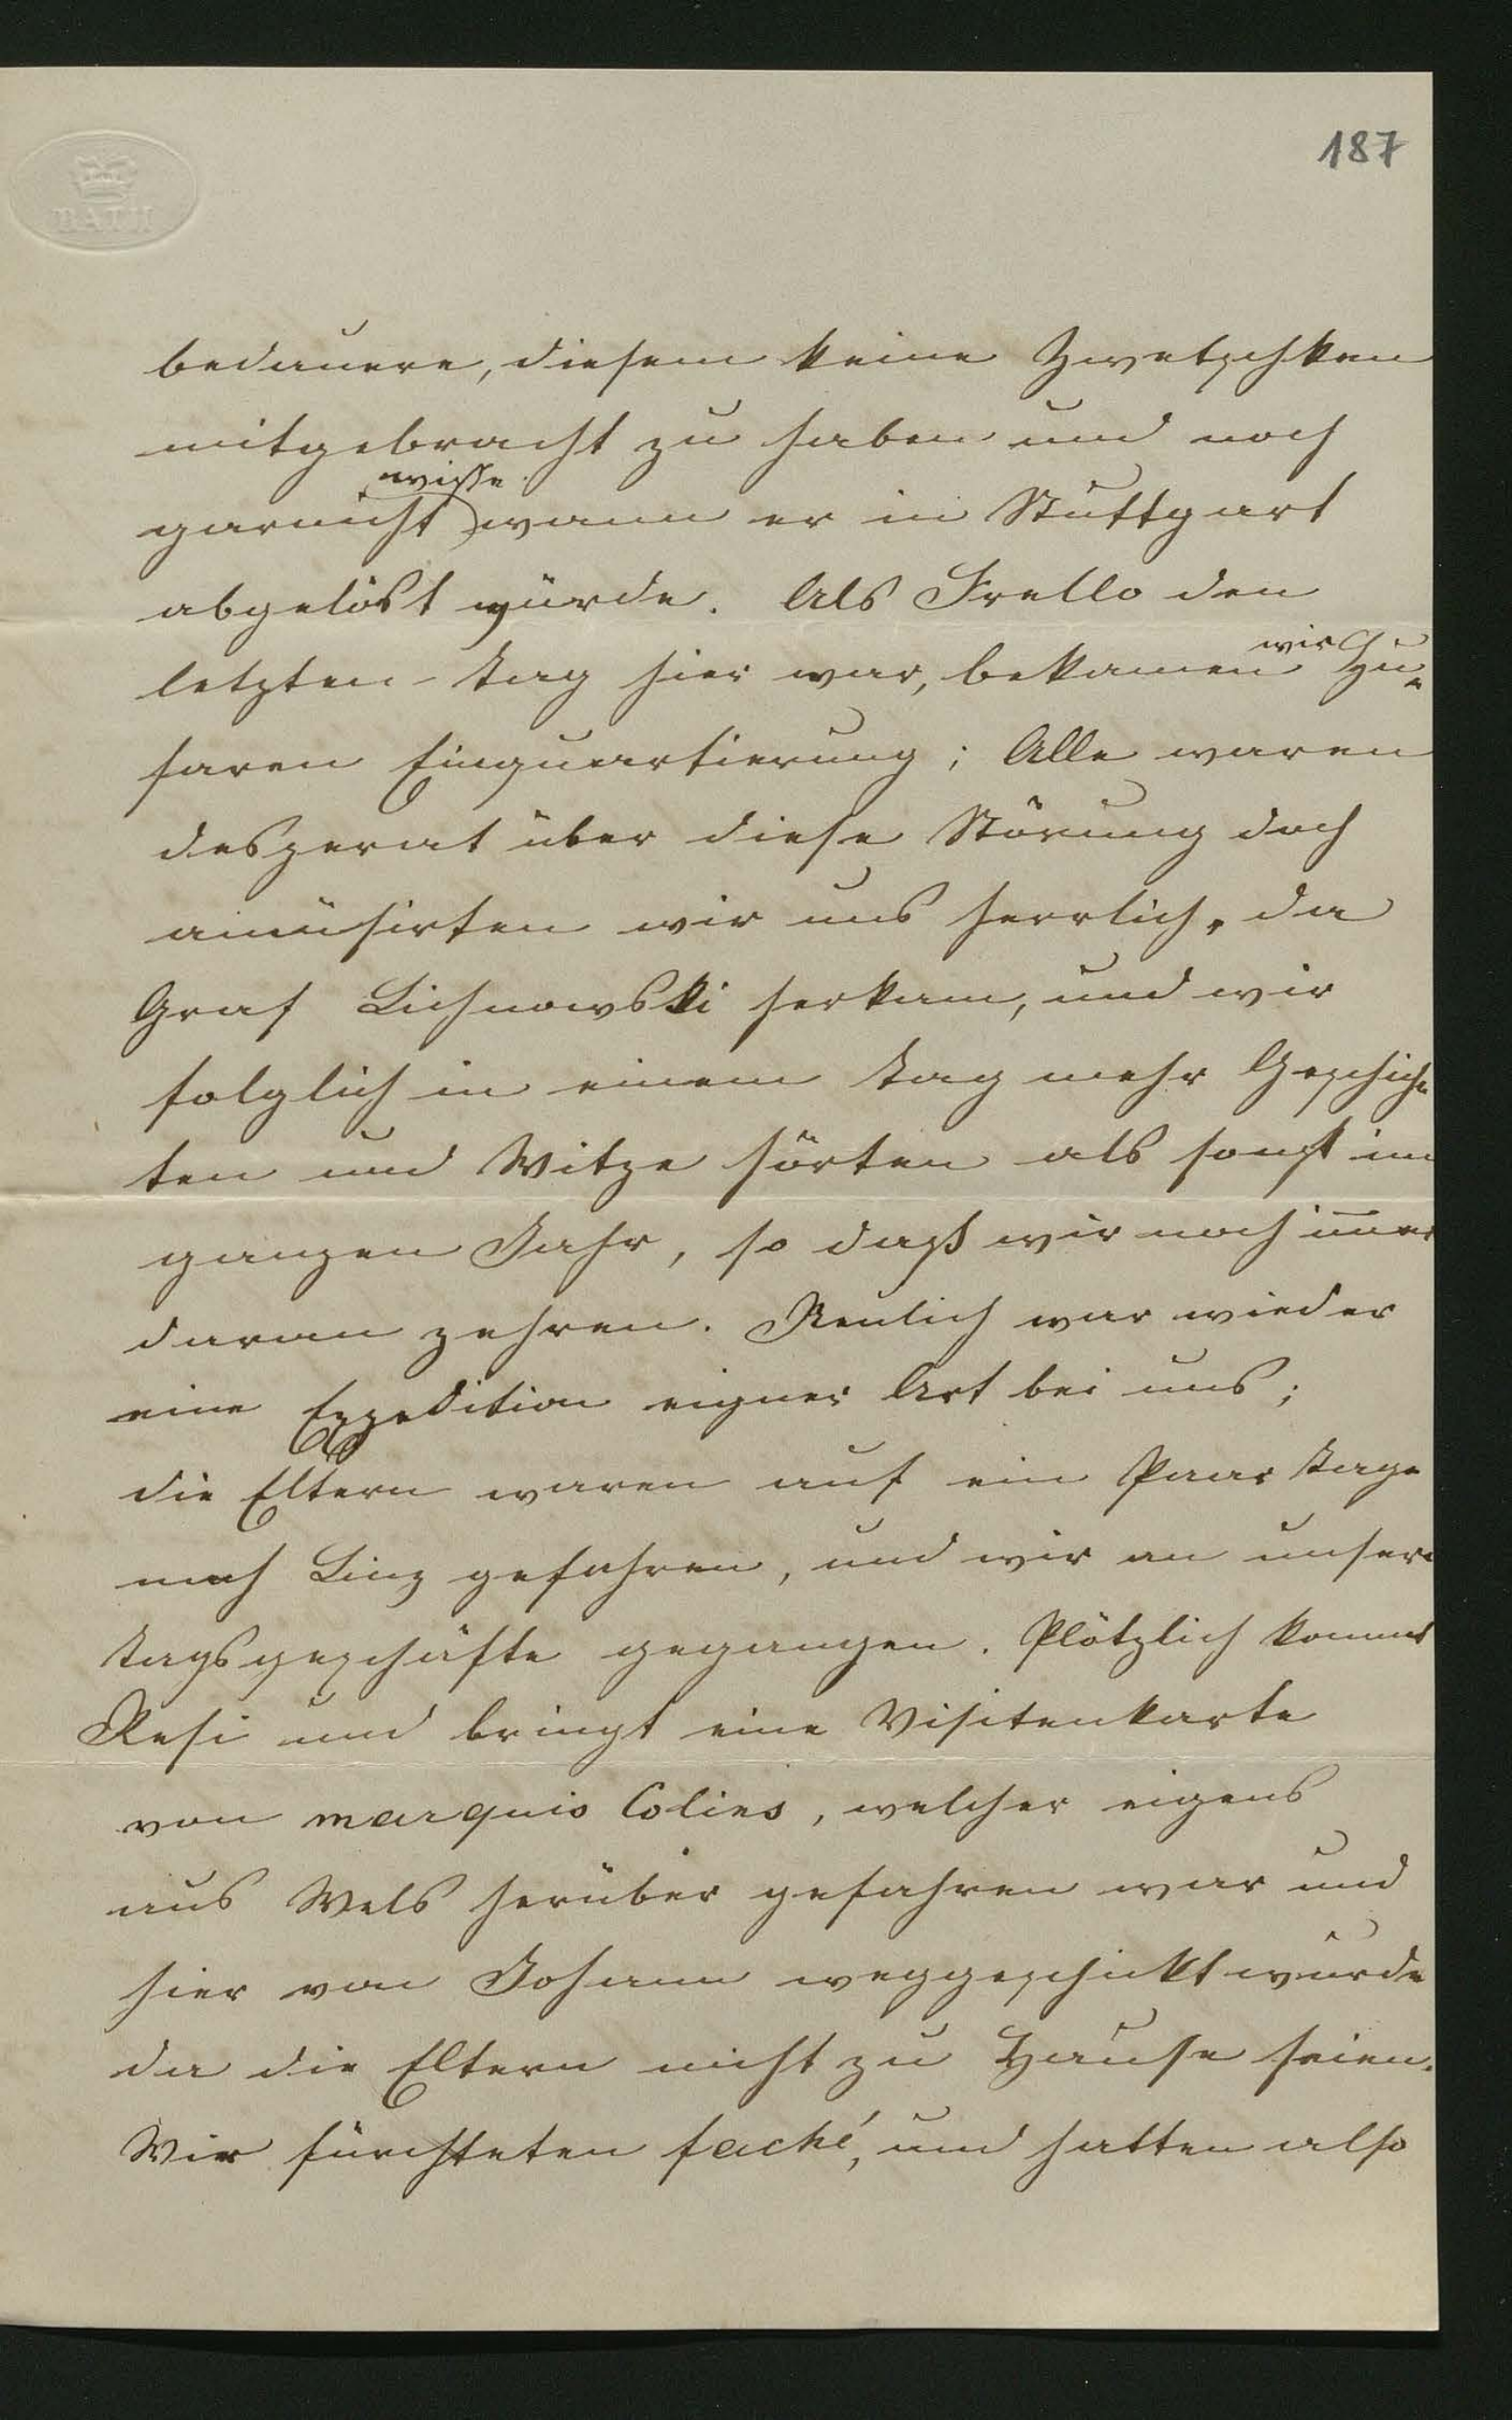 187
BATH
bedauere, diesem keine Zwetschken
mitgebracht zu haben und noch
wisse
garnicht wann er in Stuttgart
abgelöst würde. Als Frello den
wir
letzten Tag hier war, bekamen Hu-
saren Einquartierung; Alle waren
desperat über diese Störung doch
amüsirten wir uns herrlich, da
Graf Lichnowski herkam, und wir
folglich in einem Tag mehr Geschich-
ten und Witze hörten als sonst im
ganzen Jahr, so daß wir noch im̄er
daran zehren. Neulich war wieder
eine Expedition eigner Art bei uns;
die Eltern waren auf ein Paar Tage
nach Linz gefahren, und wir an unsere
Tagsgeschäfte gegangen. Plötzlich kommt
Resi und bringt eine Visitenkarte
von marquis Colins, welcher eigens
aus Wels herüber gefahren war und
hier von Johann weggeschickt wurde
da die Eltern nicht zu Hause seien.
Wir fürchteten faché, und hatten also